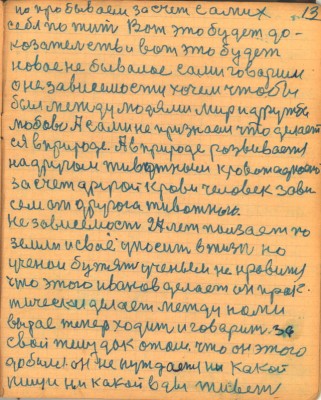 но пробываем за счет самих 13
себя пожит Вот это будет до-
казательств и вот это будет
новое не бывалое сами говорим
о не зависемости хочем чтобы
был между людями мир и дружба
любовь А сами не признаем что делает
ся в природе. А в природе розвивается
на другом животным
за счет другой крови человек зави
сем от другого животныго.
Не зависемость 27 лет ползает по
земли и свое уносит в жизн но
ученои ученьем не
что этого иванов делает он прак-
тически делает между нами
теперь ходит и говорит. за
свой желудок о том. что он этого
добился он не нуждается ни какой
пищи ни какой воды живет